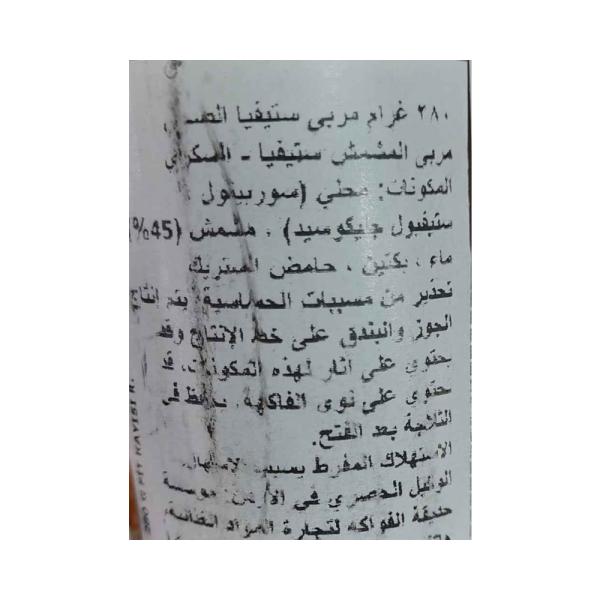 ٢٨٠ غرام مربى ستيفيا
مربى المشمش ستيفيا - السكري
المكونات: محلي (سوربيتول ،
ستيفيول جليكوسيد) ، مشمش (45%)
ماء ، بكتين ، حامض الستريك
تحذير من مسببات الحساسية: يتم إنتاج
الجوز والبندق على خط الإنتاج وقد
يحتوي على آثار لهذه المكونات، قد
يحتوي على نوى الفاكهة. يحفظ في
الثلاجة بعد الفتح.
الاستهلاك المفرط يسبب الإسهال.
الوكيل الحصري في الأردن: مؤسسة
حديقة الفواكه لتجارة المواد الغذائية،
KAYISI R.